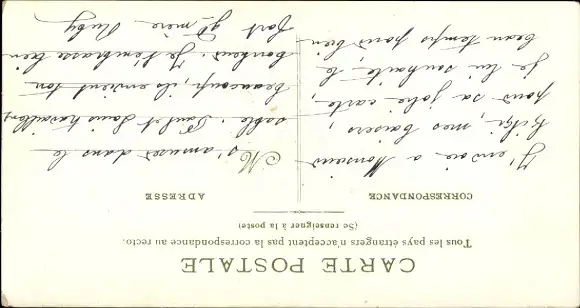 CARTE POSTALE
Tous les pays étrangers n'acceptent pas la correspondance au recto.
(Se renseigner à la poste)
CORRESPONDANCE
J'envoie a Monsieur
mes baisers,
pour sa jolie carte,
je lui souhaite, le
beau temps pour bien
ADRESSE
M s'amuser dans le
sable. Paul et Louis travaillent
beaucoup, ils envient ton
bonheur. Je t'embrasse bien
fort gd mère